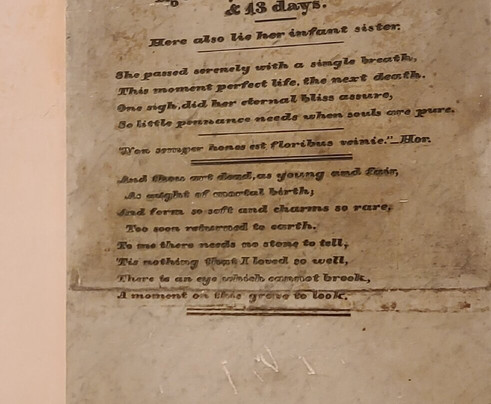 & 13 days.
Here also lie her infant sister.
She passed serenely with a single breath,
This moment perfect life, the next death.
One sigh, did her eternal bliss assure,
So little pennance needs when souls are pure.
"Non semper honos est floribus" Hor.
And thou art dead, as young and fair,
As aught of mortal birth;
And form so soft and charms so rare,
Too soon returned to earth.
To me there needs no stone to tell,
Tis nothing that I loved so well,
There is an eye which cannot brook,
A moment on this grave to look.